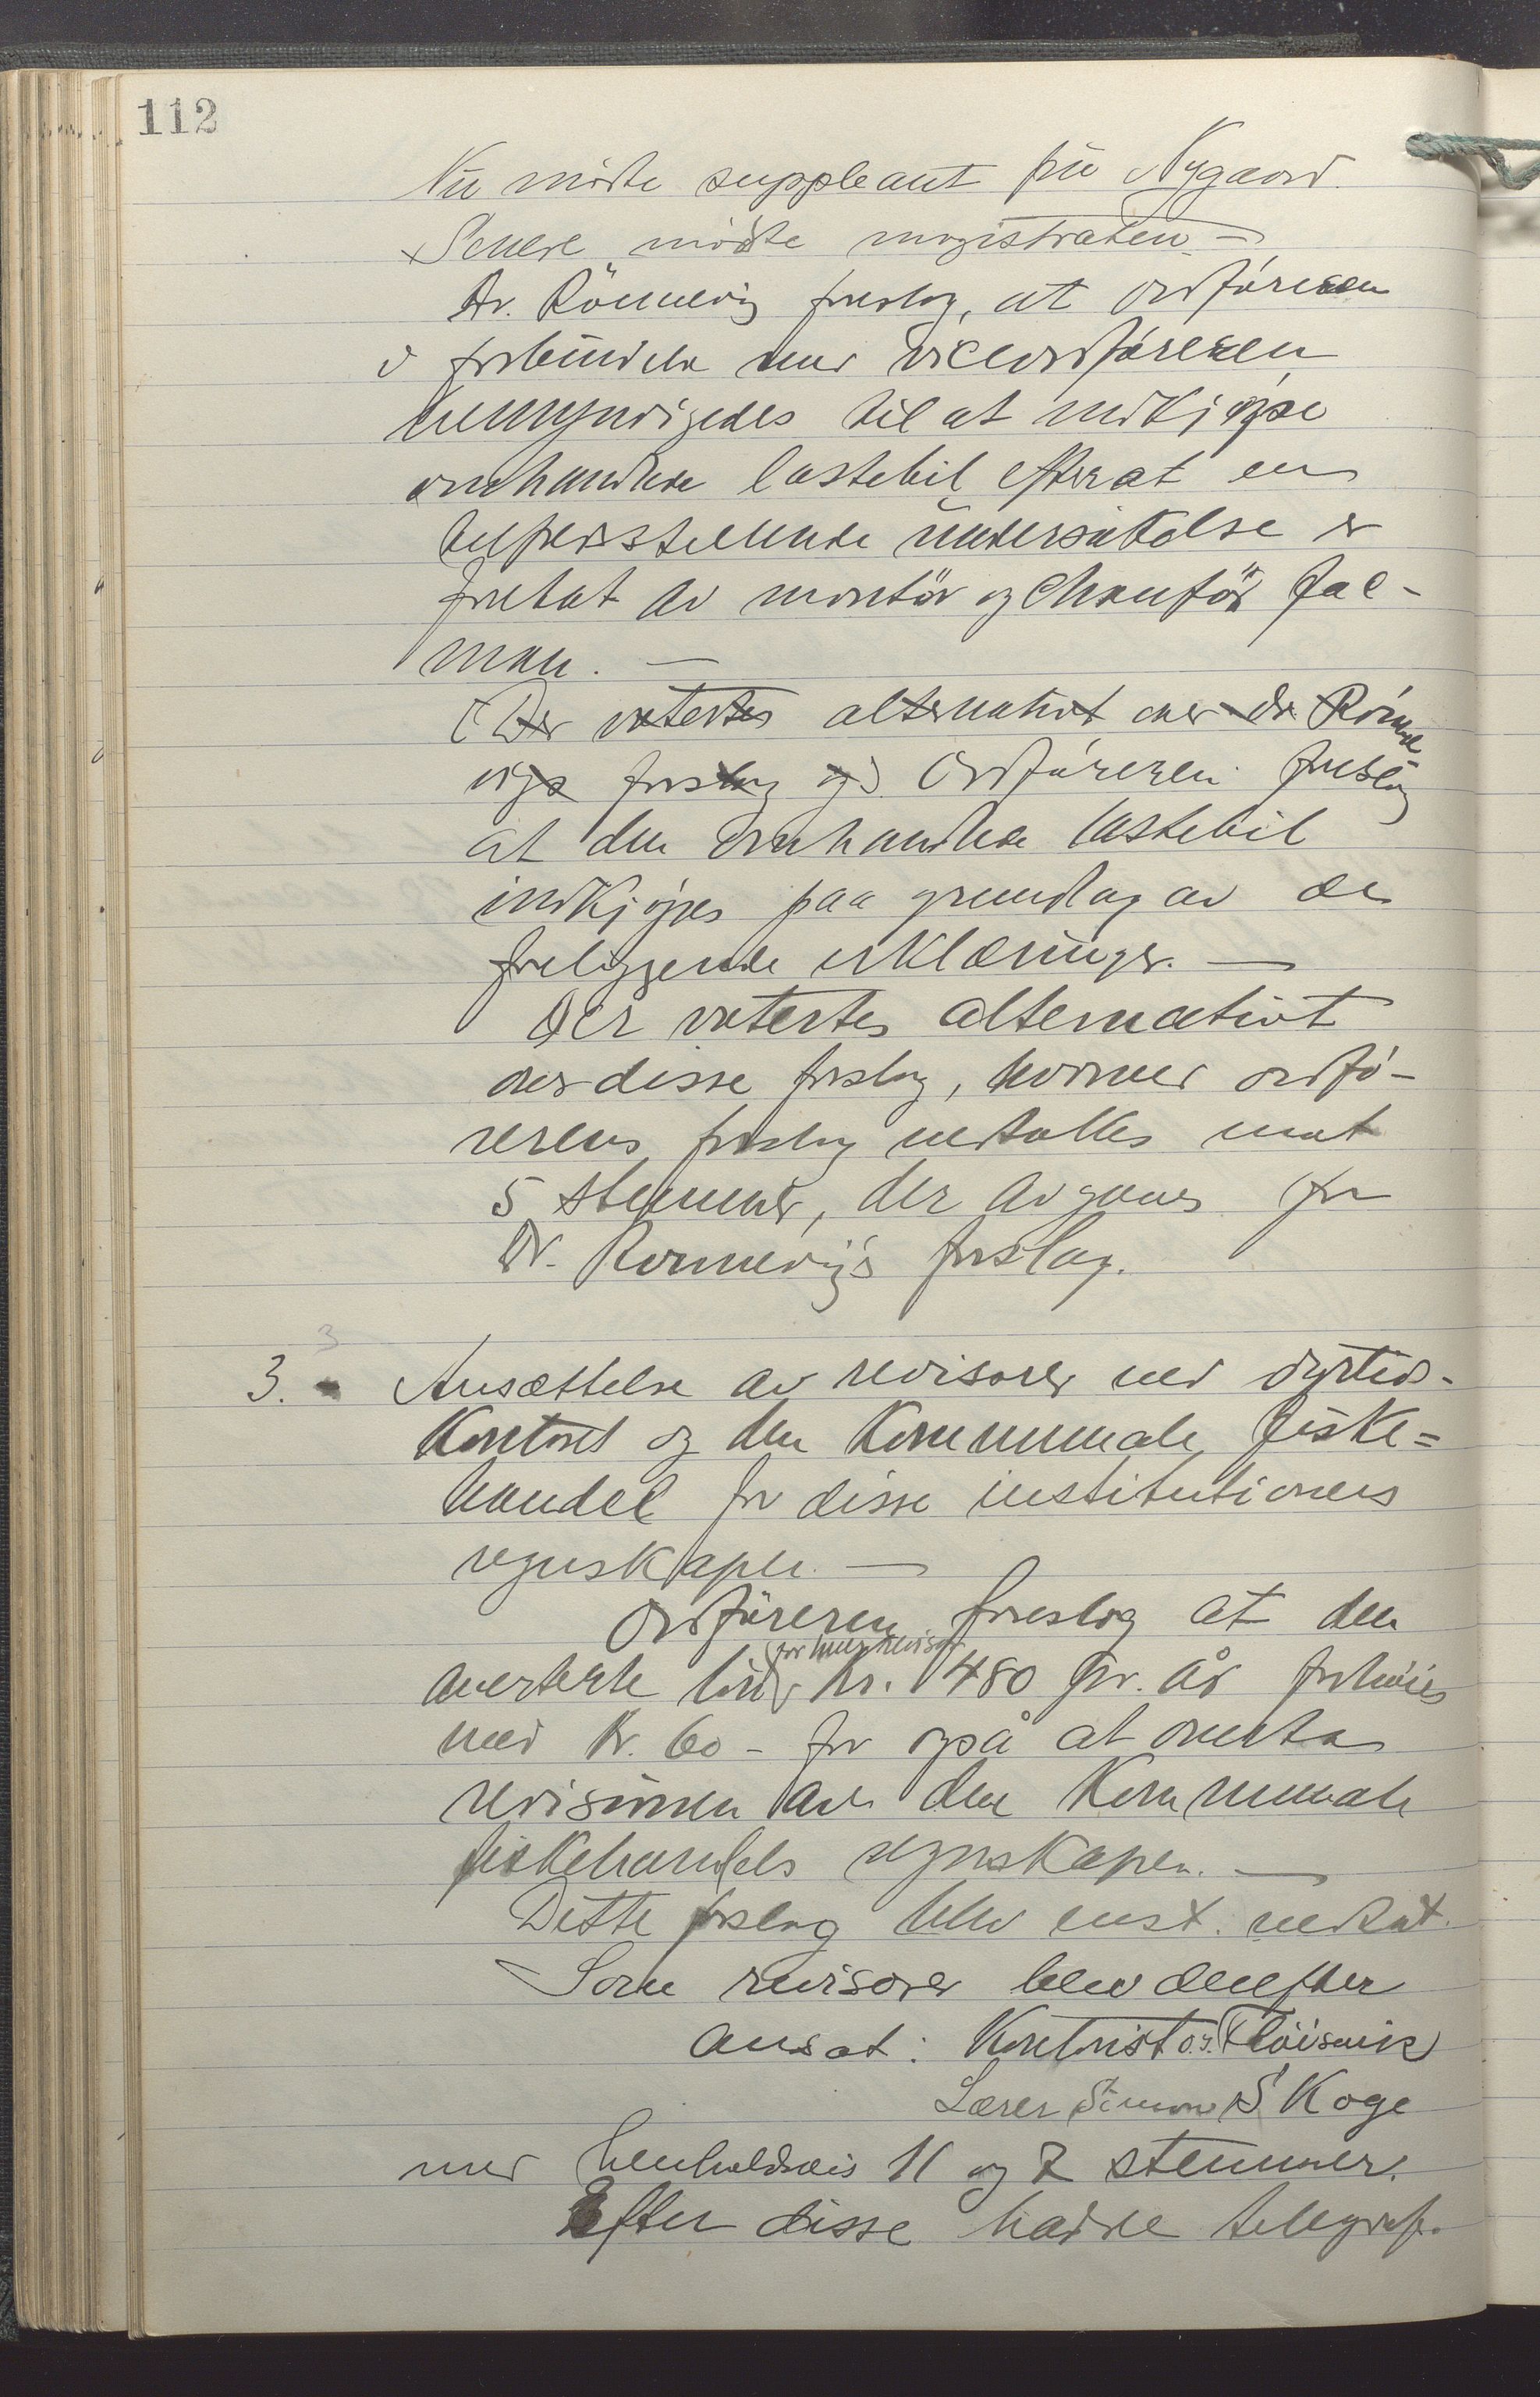 112
Nu møtte suppleant fru Nygaard.
Senere møtte magistraten. —
Dr. Rönnevig foreslog, at ordføreren
i forbindelse med viceordføreren
bemyndigedes til at indkjøpe
omhandlede lastebil efterat en
tilfredsstillende undersøkelse er
foretat av montör og chauffør Fal-
man. —
(Der votertes alternativt over dr. Rönne
vigs forslag og) Ordføreren foreslog
at den omhandlede lastebil
indkjøpes paa grundlag av de
foreliggende erklæringer. —
Der votertes alternativt
over disse forslag, hvorved ordfø-
rerens forslag vedtokes mot
5 stemmer, der avgaves for
Dr. Rønnevig's forslag.
3
3. Ansættelse av revisorer ved dyrtids-
kontoret og den kommunale fiske=
handel for disse institutioners
regnskaper. —
Ordføreren foreslog at den
for hver revisor
averterte løn kr. 480 pr. år forhøies
med kr. 60 - for også at omfatte
revisionen av den kommunale
fiskehandels regnskaper. —
Dette forslag blev enst. vedtat.
Som revisorer blev derefter
ansat: Kontorist O.J. Fløisvik
Lærer Simon S. Koge
med henholdsvis 11 og 7 stemmer.
Efter disse hadde telegraf-